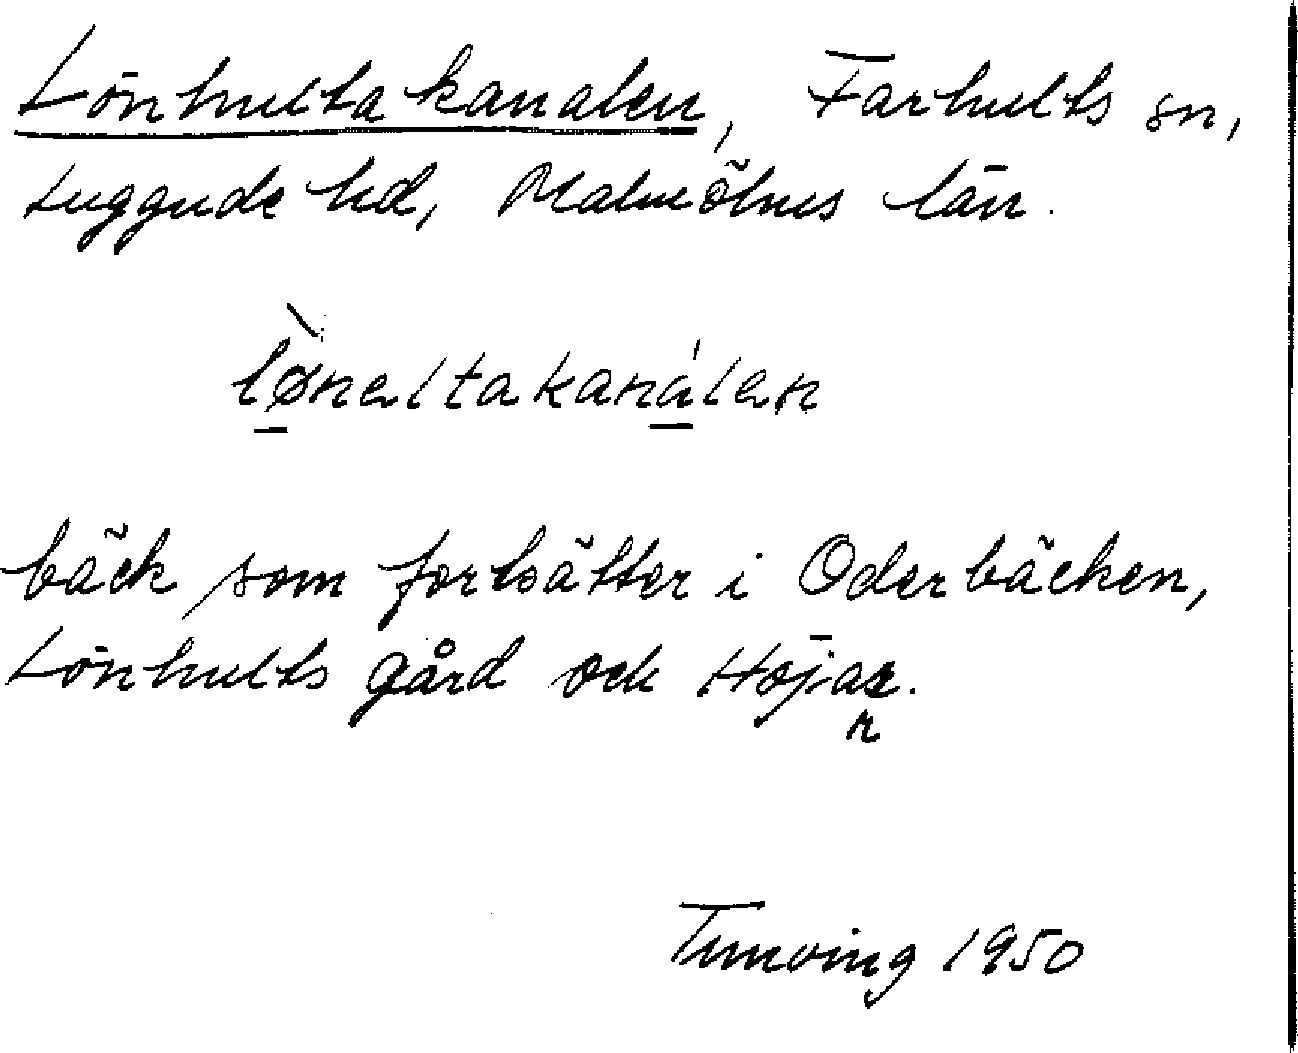 Lönhultakanalen, Farhults sn,
Luggude hd, Malmöhus län.
lø̲̀neltakaná̲len
bäck som fortsätter i Oderbäcken,
Lönhults gård och Höjar.
r
1950